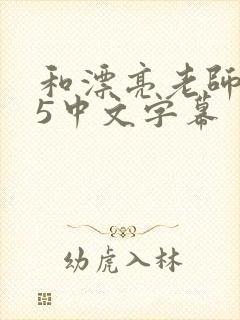 和漂亮老師
5中文字幕
幼虎入林